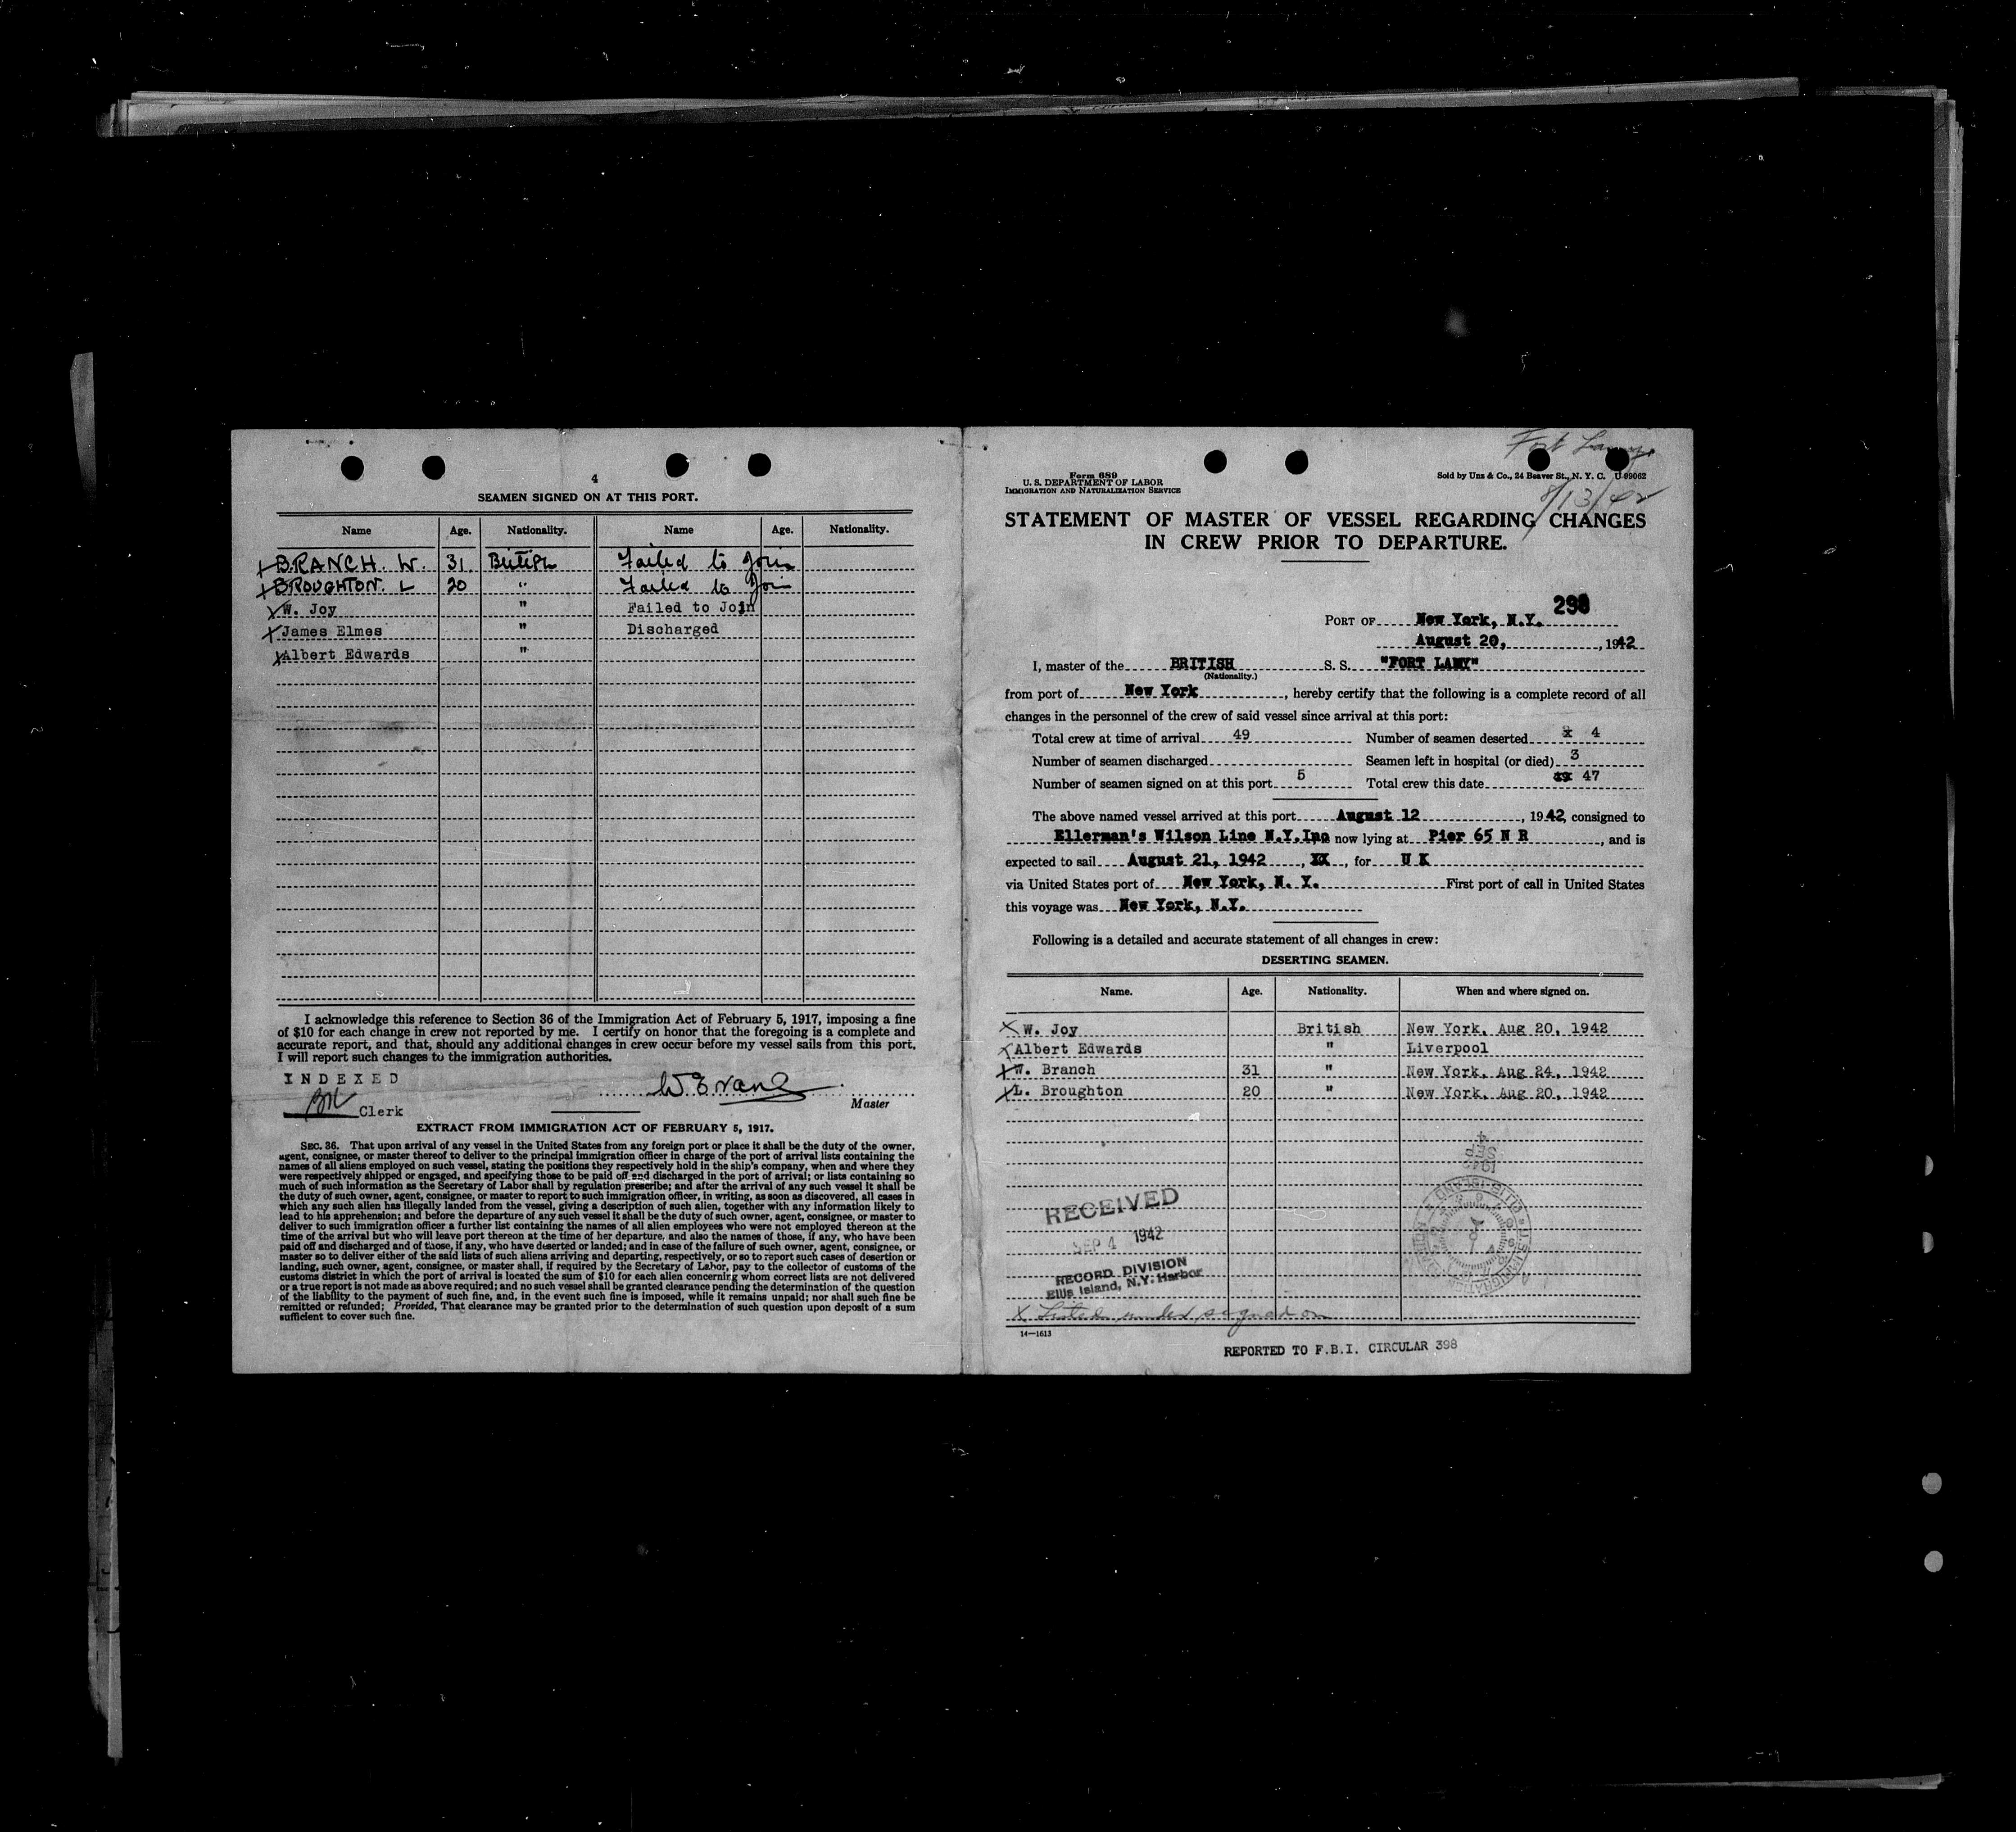 4
SEAMEN SIGNED ON AT THIS PORT.
Name Age. Nationality. Name Age. Nationality.
BRANCH. W. 31. British Failed to Join
BROUGHTON. L 20 " Failed to Join
W. Joy " Failed to Join
James Elmes " Discharged
Albert Edwards "
I acknowledge this reference to Section 36 of the Immigration Act of February 5, 1917, imposing a fine
of $10 for each change in crew not reported by me. I certify on honor that the foregoing is a complete and
accurate report, and that, should any additional changes in crew occur before my vessel sails from this port,
I will report such changes to the immigration authorities.
INDEXED
Clerk
W Evans
Master
EXTRACT FROM IMMIGRATION ACT OF FEBRUARY 5, 1917.
SEC. 36. That upon arrival of any vessel in the United States from any foreign port or place it shall be the duty of the owner,
agent, consignee, or master thereof to deliver to the principal immigration officer in charge of the port of arrival lists containing the
names of all aliens employed on such vessel, stating the positions they respectively hold in the ship's company, when and where they
were respectively shipped or engaged, and specifying those to be paid off and discharged in the port of arrival; or lists containing so
much of such information as the Secretary of Labor shall by regulation prescribe; and after the arrival of any such vessel it shall be
the duty of such owner, agent, consignee, or master to report to such immigration officer, in writing, as soon as discovered, all cases in
which any such alien has illegally landed from the vessel, giving a description of such alien, together with any information likely to
lead to his apprehension; and before the departure of any such vessel it shall be the duty of such owner, agent, consignee, or master to
deliver to such immigration officer a further list containing the names of all alien employees who were not employed thereon at the
time of the arrival but who will leave port thereon at the time of her departure, and also the names of those, if any, who have been
paid off and discharged and of those, if any, who have deserted or landed; and in case of the failure of such owner, agent, consignee, or
master so to deliver either of the said lists of such aliens arriving and departing, respectively, or so to report such cases of desertion or
landing, such owner, agent, consignee, or master shall, if required by the Secretary of Labor, pay to the collector of customs of the
customs district in which the port of arrival is located the sum of $10 for each alien concerning whom correct lists are not delivered
or a true report is not made as above required; and no such vessel shall be granted clearance pending the determination of the question
of the liability to the payment of such fine, and, in the event such fine is imposed, while it remains unpaid; nor shall such fine be
remitted or refunded; Provided, That clearance may be granted prior to the determination of such question upon deposit of a sum
sufficient to cover such fine.
Fort Lamy
8/13/42
Form 689
U. S. DEPARTMENT OF LABOR
IMMIGRATION AND NATURALIZATION SERVICE
Sold by Unz & Co., 24 Beaver St., N. Y. C. U-99062
STATEMENT OF MASTER OF VESSEL REGARDING CHANGES
IN CREW PRIOR TO DEPARTURE.
298
PORT OF New York, N.Y.
August 20, , 1942
I, master of the BRITISH S. S. "FORT LAMY"
(Nationality.)
from port of New York, hereby certify that the following is a complete record of all
changes in the personnel of the crew of said vessel since arrival at this port:
Total crew at time of arrival 49 Number of seamen deserted 4
Number of seamen discharged Seamen left in hospital (or died) 3
Number of seamen signed on at this port 5 Total crew this date 47
The above named vessel arrived at this port August 12, 1942, consigned to
Ellerman's Wilson Line N.Y.Inc now lying at Pier 65 N R, and is
expected to sail August 21, 1942, XX, for U K
via United States port of New York, N. Y. First port of call in United States
this voyage was New York, N.Y.
Following is a detailed and accurate statement of all changes in crew:
DESERTING SEAMEN.
Name. Age. Nationality. When and where signed on.
W. Joy British New York, Aug 20, 1942
Albert Edwards " Liverpool
W. Branch 31 " New York, Aug 24, 1942
L. Broughton 20 " New York, Aug 20, 1942
RECEIVED
SEP 4 1942
RECORD DIVISION
Ellis Island, N.Y. Harbor
X Listed under signed on
14—1613
REPORTED TO F.B.I. CIRCULAR 398